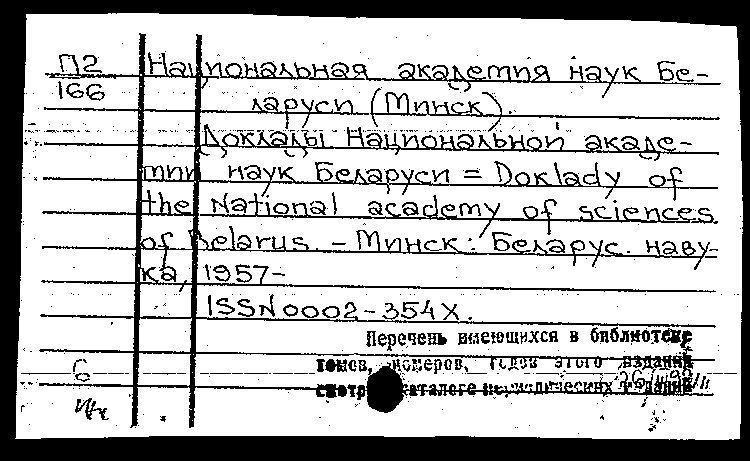 П2
166
Национальная академия наук Бе-
ларуси (Минск).
Доклады Национальной акаде-
мии наук Беларуси = Doklady of
the National academy of sciences
of Belarus. - Минск: Беларус. наву-
ка, 1957-
ISSN 0002-354X.
Перечень имеющихся в библиотеке
томов, номеров, годов этого издания
смотри каталоге периодических изданий
6